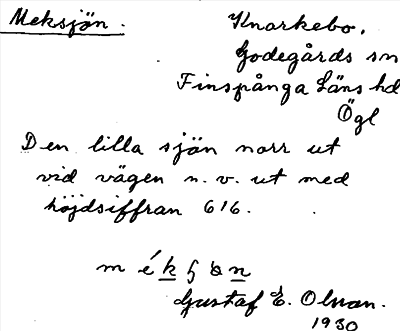 Meksjön.
Knarkebo,
Godegårds sn
Finspånga Läns hd
Ögl
Den lilla sjön norr ut
vid vägen n. v. ut med
höjdsiffran 616.
Gustaf E. Olsson.
1930